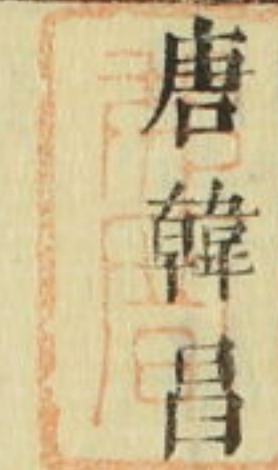 唐韓昌